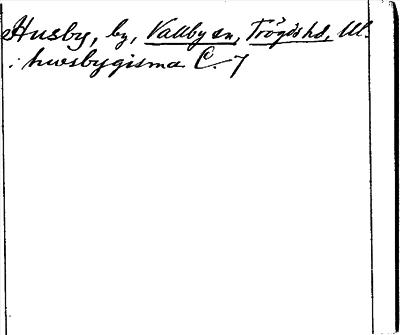 Husby, by, Vallby sn, Trögds hd, Ul.
: husbygisma C. 7